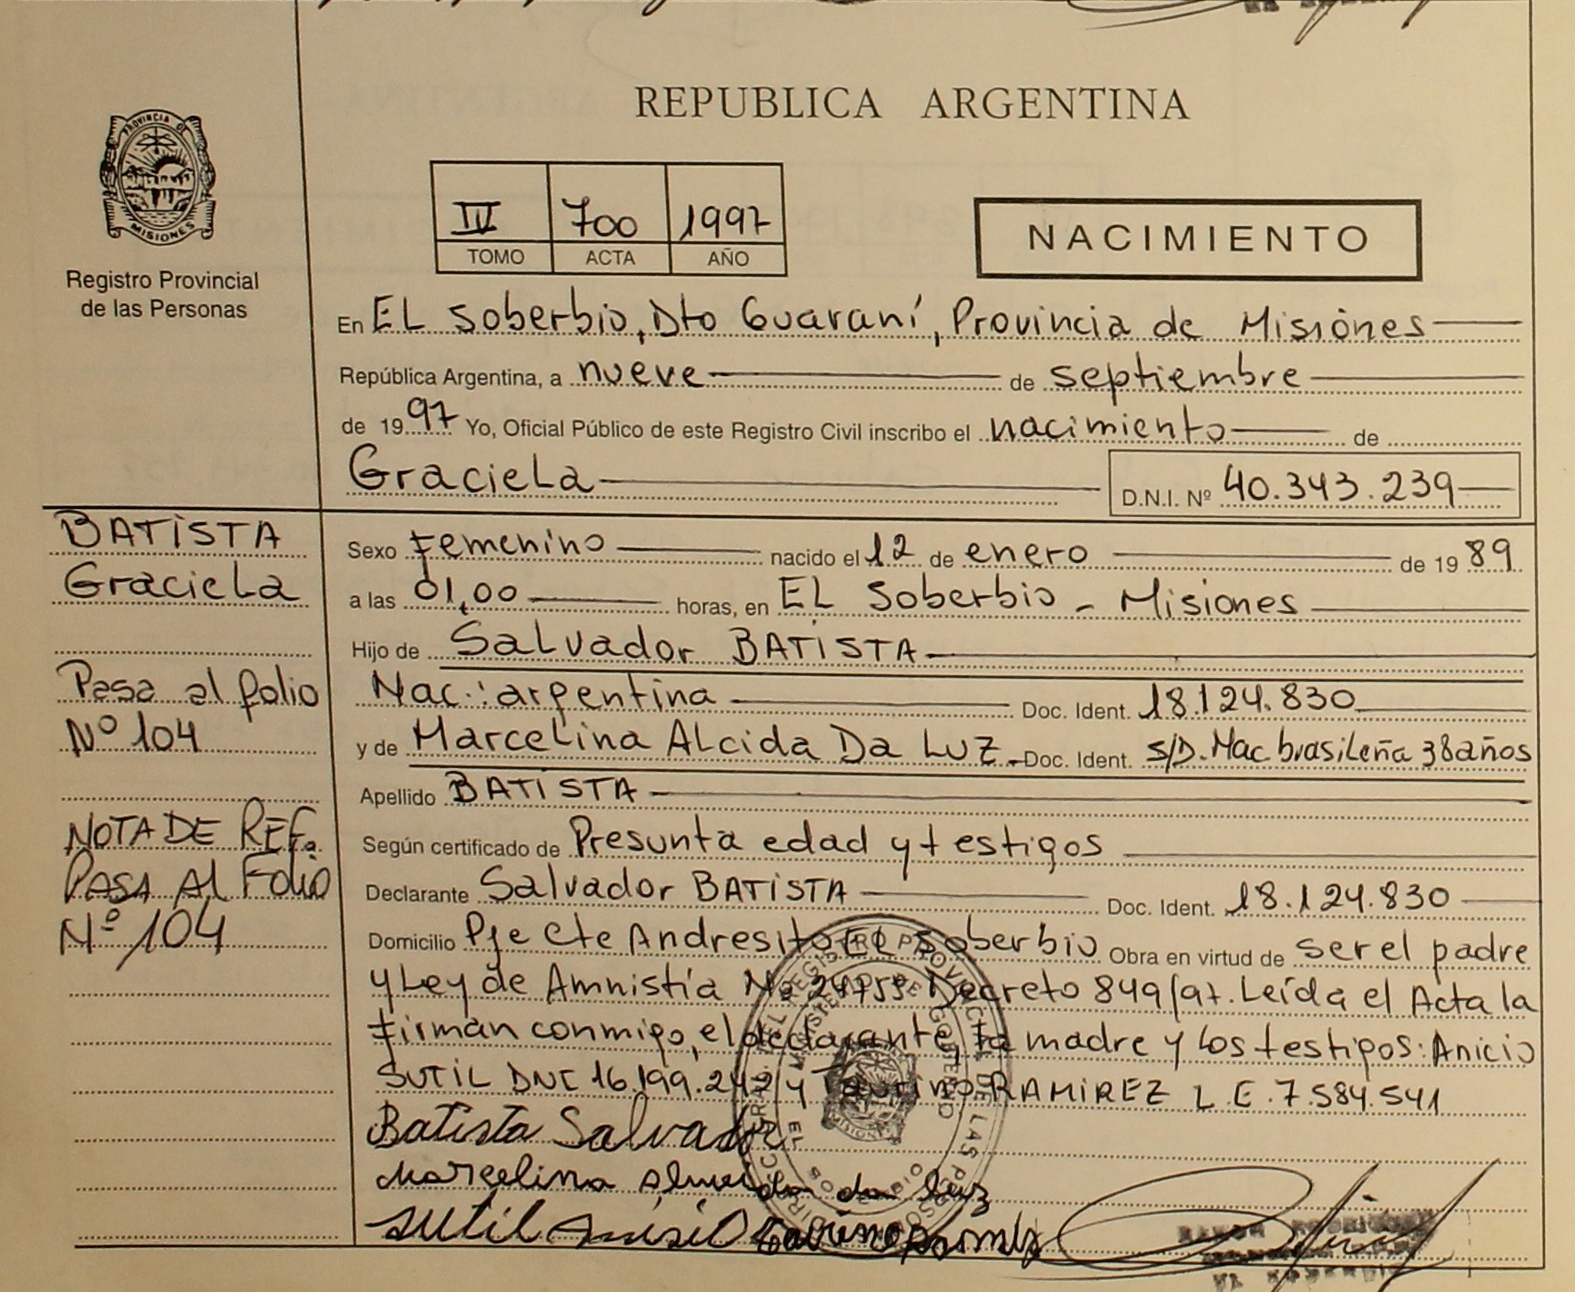 REPUBLICA ARGENTINA
PROVINCIA DE
MISIONES
Registro Provincial
de las Personas
IV 700 1997
TOMO ACTA AÑO
NACIMIENTO
En EL Soberbio, Dto Guaraní, Provincia de Misiones
República Argentina, a nueve de septiembre
de 1997 Yo, Oficial Público de este Registro Civil inscribo el nacimiento de
Graciela D.N.I. Nº 40.343.239
BATISTA
Graciela
Pasa al folio
Nº 104
NOTA DE REF.
PASA Al Folio
Nº 104
Sexo Femenino nacido el 12 de enero de 1989
a las 01,00 horas, en EL Soberbio - Misiones
Hijo de Salvador BATISTA
Nac: argentina Doc. Ident. 18.124.830
y de Marcelina Alcida Da Luz Doc. Ident. S/D. Nac brasileña 38 años
Apellido BATISTA
Según certificado de Presunta edad y testigos
Declarante Salvador BATISTA Doc. Ident. 18.124.830
Domicilio Pje Cte Andresito EL Soberbio Obra en virtud de ser el padre
y Ley de Amnistía Nº 24755 Decreto 849/97. Leída el Acta la
firman conmigo, el declarante, la madre y los testigos: Anicio
SUTIL DNI 16.199.242 y Taurino RAMIREZ L E. 7.584.541
Batista Salvador
Marcelina da luz
Sutil
EL SOBERBIO